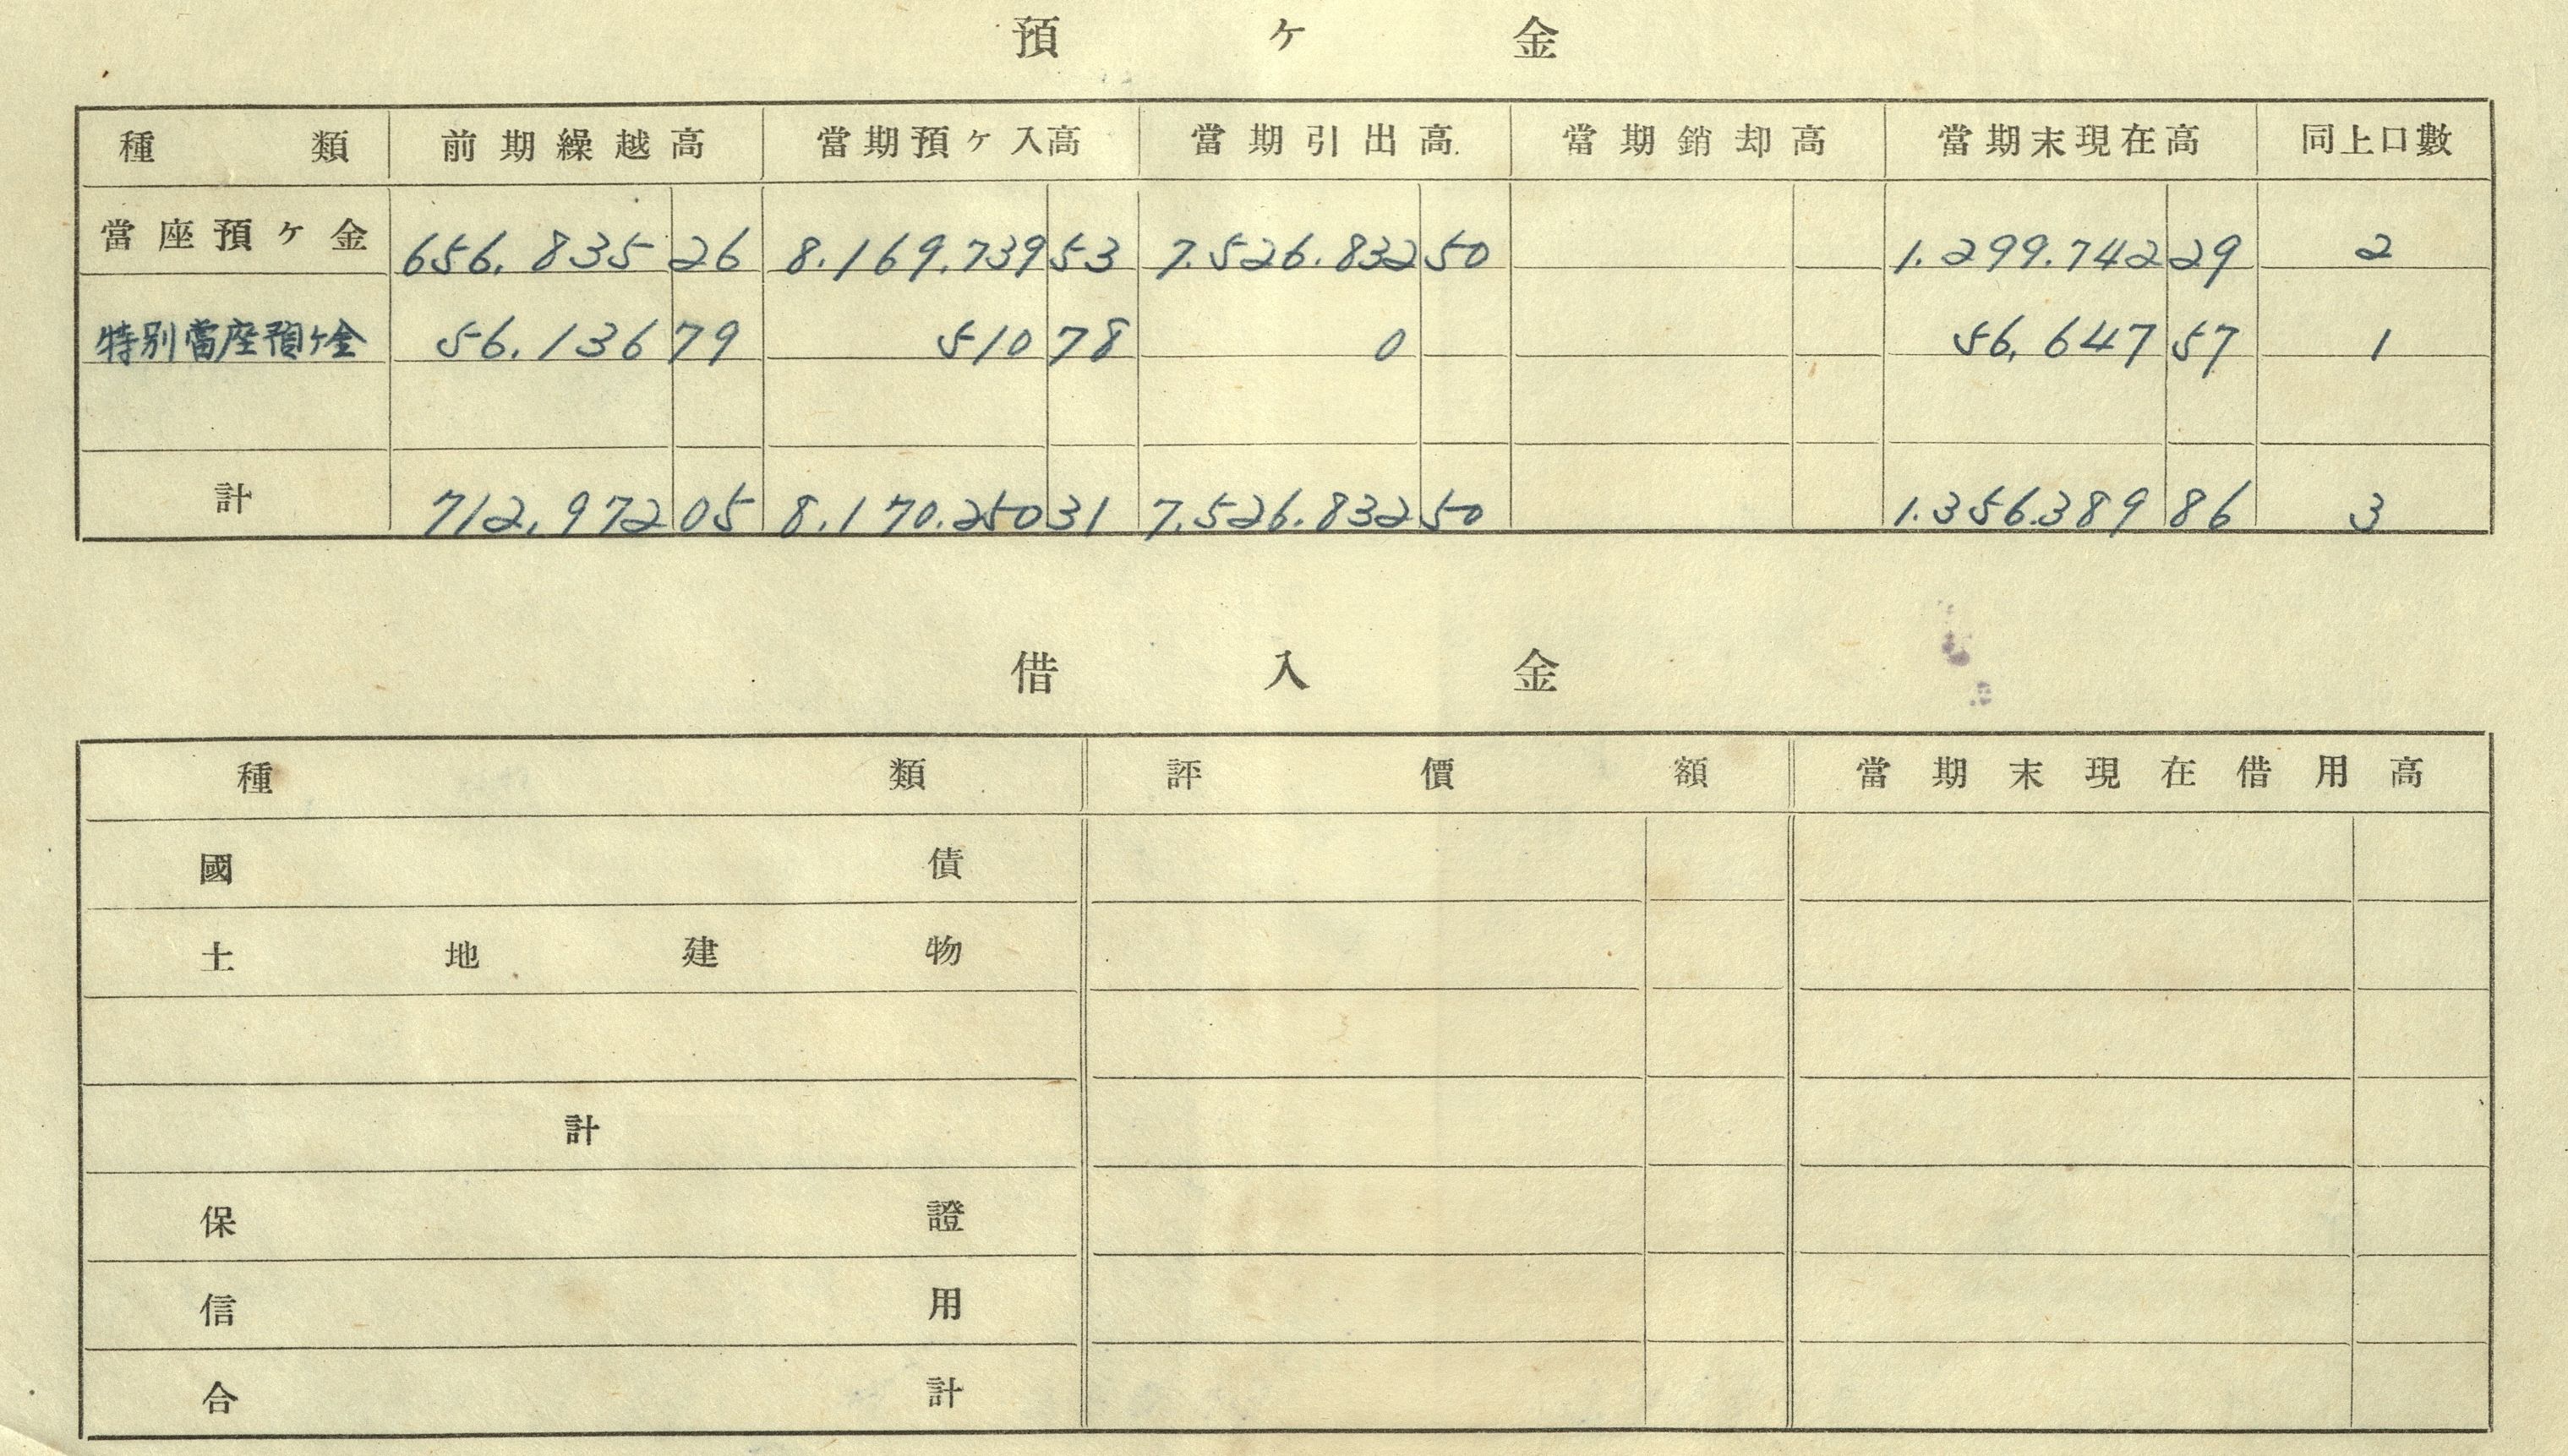 預ヶ金
種類 前期繰越高 當期預ヶ入高 當期引出高 當期銷却高 當期末現在高 同上口數
當座預ヶ金 656.835 26 8.169.739 53 7.526.832 50 1.299.742 29 2
特別當座預ヶ金 56.136 79 510 78 0 56.647 57 1
計 712.972 05 8.170.250 31 7.526.832 50 1.356.389 86 3
借入金
種類 評價額 當期末現在借用高
國債
土地建物
計
保證
信用
合計